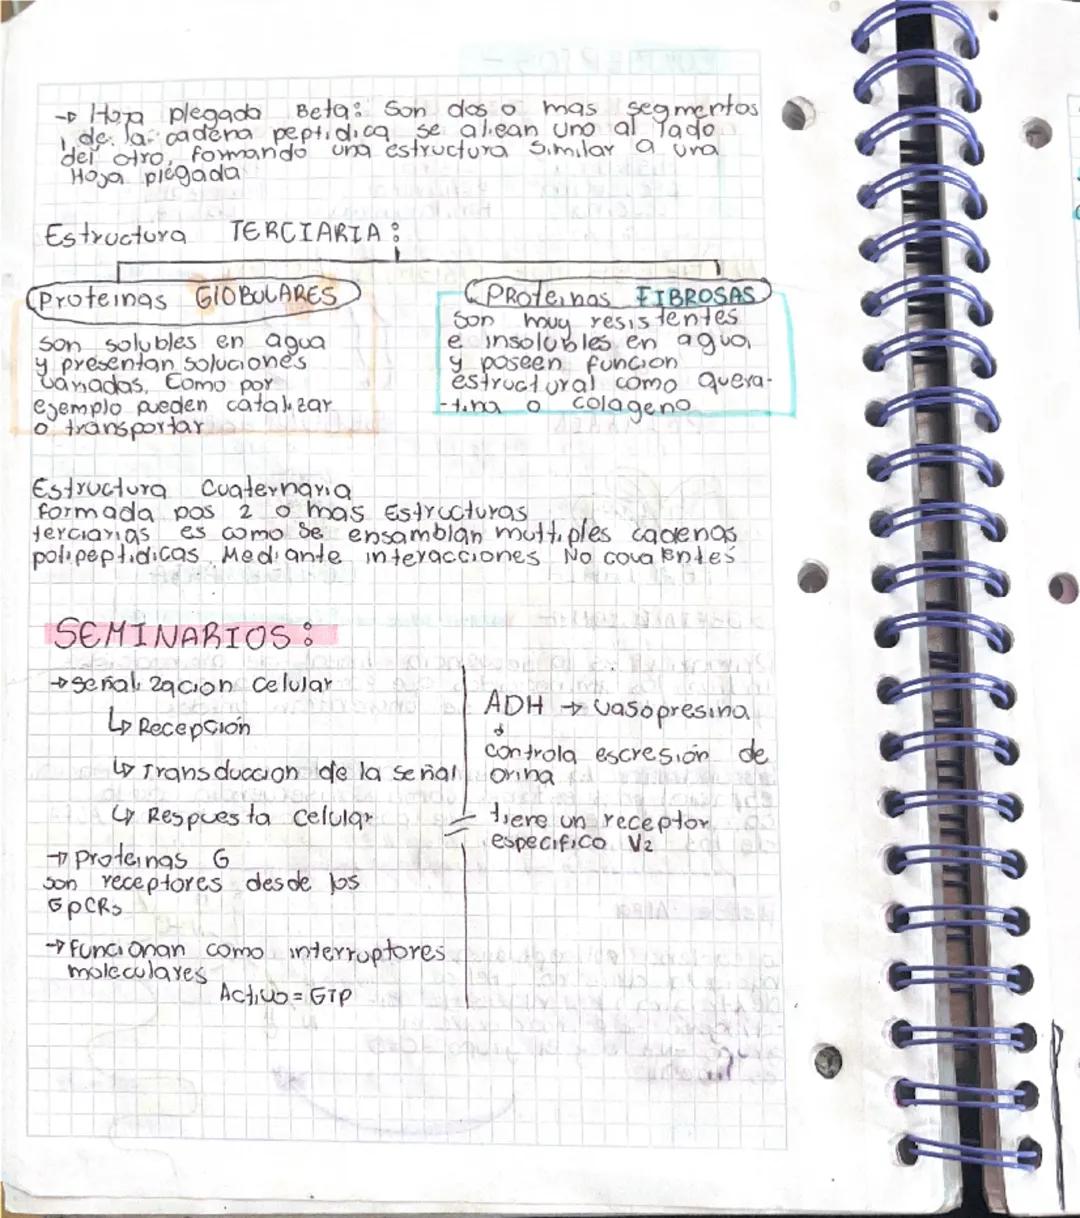 → Hoja plegada Beta: Son dos o mas segmentos
de la cadena peptidica se alean uno al lado
del otro, formando una estructura similar a una
Hoja plegada
Estructura TERCIARIA:
Proteinas GlOBULARES
son solubles en agua
y presentan soluciones
variadas. Como por
ejemplo pueden catalizar
o transportar
PRoteinas FIBROSAS
son muy resistentes
e insolubles en agua,
y poseen funcion
estructural como quera-
-tina o colageno
Estructura Cuaternaria
formada pos 2 o mas Estructuras
terciarias es como se ensamblan multiples cadenas
polipeptidicas Mediante interacciones No covalentes
SEMINARIOS:
→ señalizacion celular
↳ Recepción
↳ Transduccion de la señal
↳ Respuesta celular
→ Proteinas G
son receptores desde los
GpCRs
→ Funcionan como interruptores
moleculares
Activo = GTP
ADH → vasopresina
↓
controla escresión de
orina
tiene un receptor
especifico V2